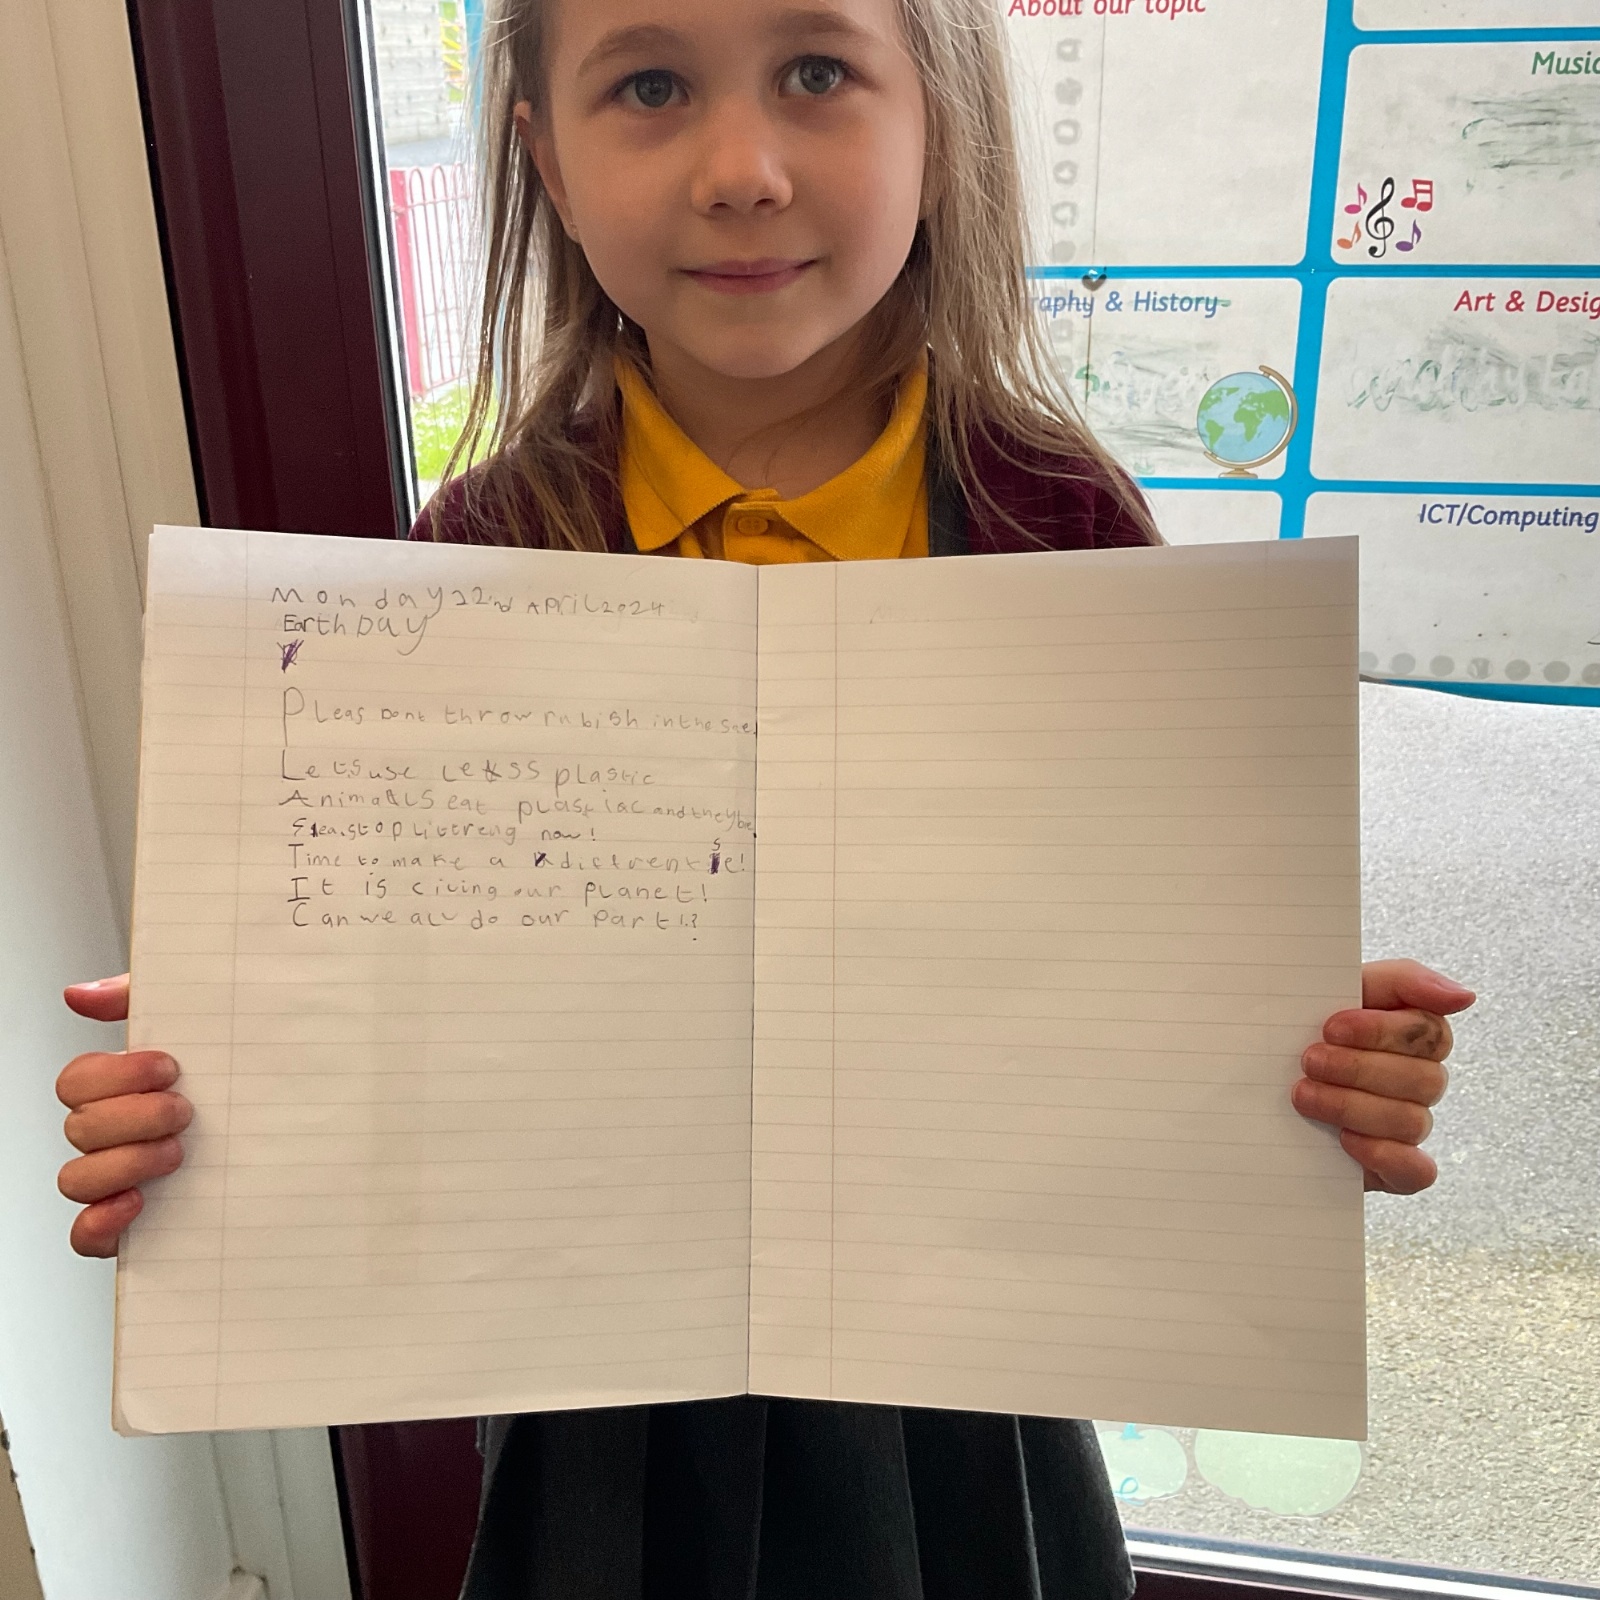 About our topic
Music
raphy & History
Art & Desig
ICT/Computing
Monday 22nd April 2024
Earth Day
Pleas Dont throw rubish in the sae.
Lets use less plastic
Animalls eat plastiac and they
stop littreng now!
Time to make a dicfrent se!
It is civing our planet!
Can we all do our part!?